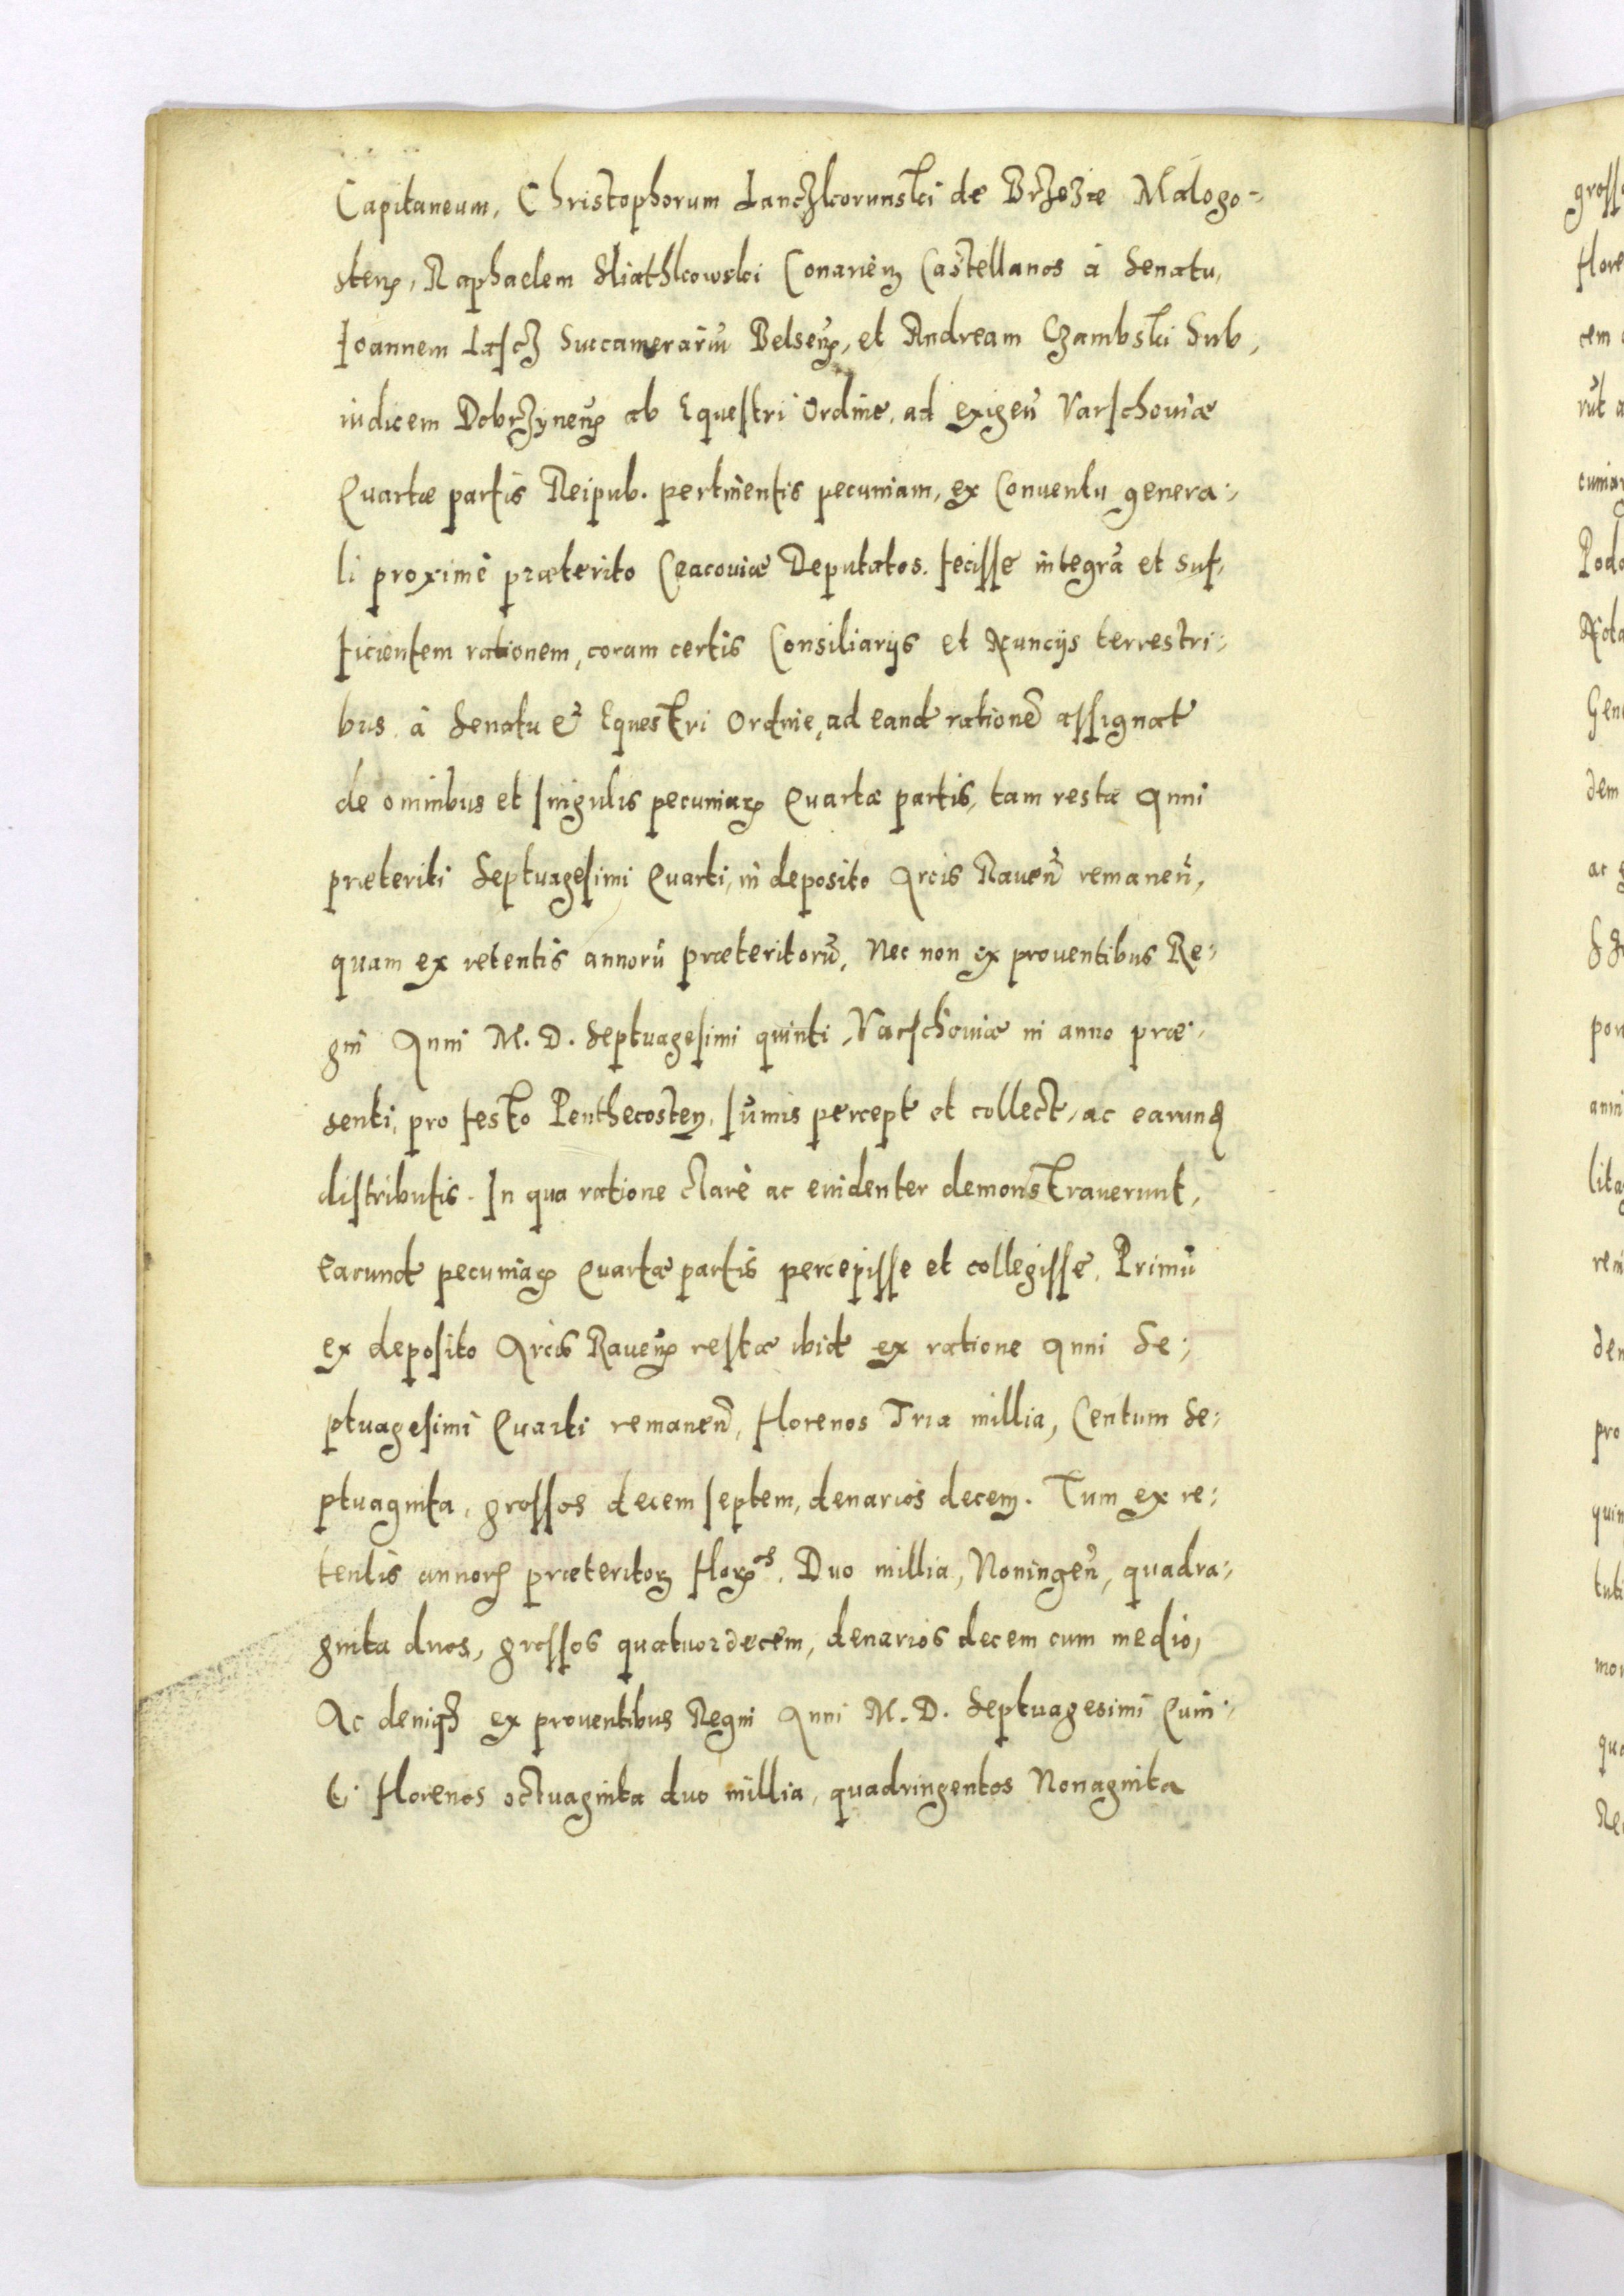 Capitaneum, Christophorum Lanczkorunski de Brzezie Malogo-
stens, Raphaelem Sliathkowski Conarien Castellanos à Senatu,
Ioannem Lasch Succamerariũ Belsens, et Andream Czambski Sub,
iudicem Dobrzynens ab Equestri Ordine, ad exigeñ Varschouiæ
Quartæ partis Reipub. pertinentis pecuniam, ex Conuentu genera-,
li proximè præterito Cracouiæ Deputatos. fecisse integrã et suf,
ficientem rationem, coram certis Consiliarijs et Nuncijs terrestri-,
bus. à Senatu et Equestri Ordine, ad eand rationẽ assignat
de omnibus et singulis pecuniarũ Quartæ partis, tam resta Anni
præteriti Septuagesimi Quarti, in deposito Arcis Raueñ remaneñ,
quam ex retentis annorũ præteritorũ, Nec non ex prouentibus Re-,
gni Anni M. D. Septuagesimi quinti, Varschouiæ in anno præ-,
senti, pro festo Penthecosten, sũmis percept et collect, ac earund
distributis. In qua ratione clarè ac euidenter demonstrauerunt,
Earund pecuniarũ Quartæ partis percepisse et collegisse. Primũ
ex deposito Arcis Rauens resta ibid ex ratione Anni Se-,
ptuagesimi Quarti remaneñ, florenos Tria millia, Centum Se-,
ptuaginta, grossos decem septem, denarios decem. Tum ex re-,
tentis annorũ præteritorũ flor os. Duo millia, Noningeñ, quadra-,
ginta duos, grossos quatuordecem, denarios decem cum medio,
Ac deniqz ex prouentibus Regni Anni M. D. Septuagesimi Quin-,
ti. florenos octuaginta duo millia, quadringentos Nonaginta